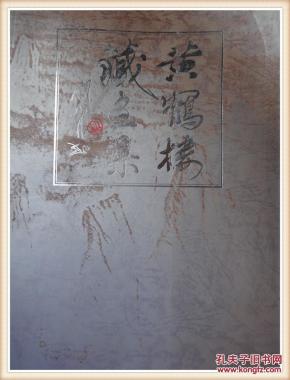 黄鹤楼
藏画集
孔夫子旧书网
www.kongfz.com